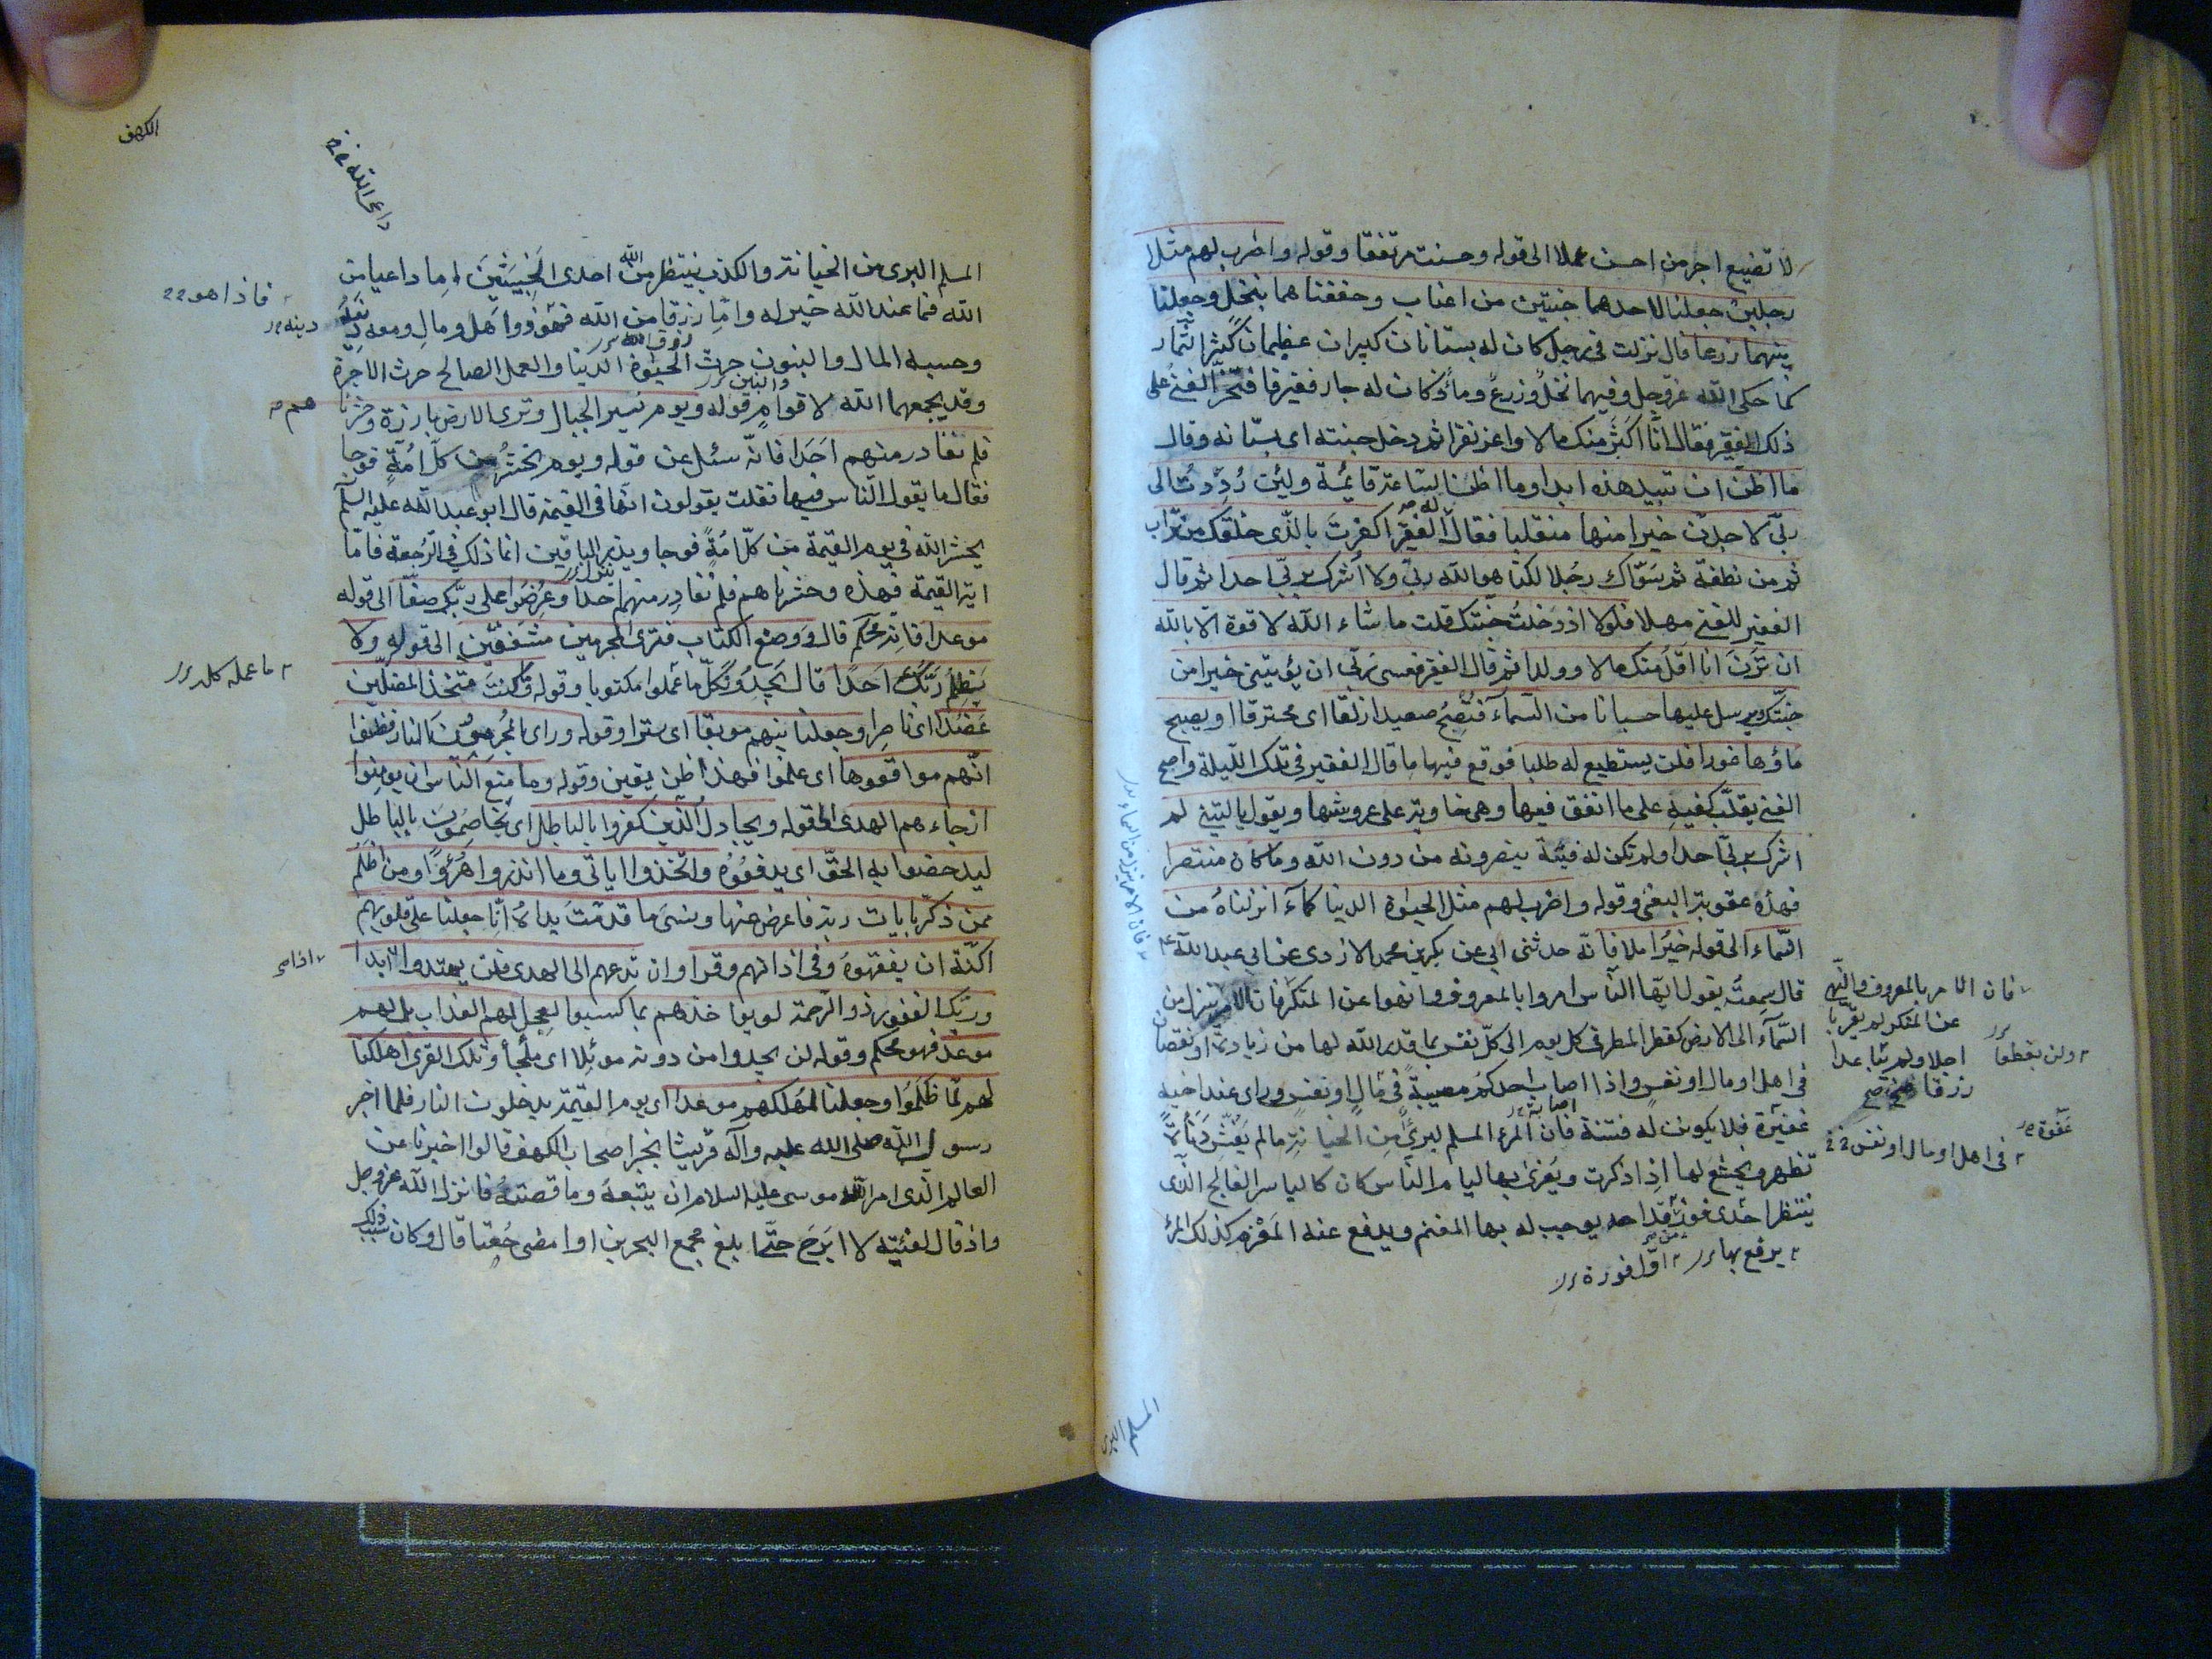 لا تضيع اجر من احسن عملا الى قوله وحسنت مرتفقا وقوله واضرب لهم مثلا
رجلين جعلنا لاحدهما جنتين من اعناب وحففناهما بنخل وجعلنا
بينهما زرعا قال نزلت فى رجل كان له بستانان كبيران عظيمان كثيرا الثمار
كما حكى الله عزوجل وفيهما نخل وزرع وماء وكان له جار فقير فافتخر الغنى على
ذلك الفقير فقال انا اكثر منك مالا واعز نفرا ثم دخل جنته اى بستانه وقال
ما اظن ان تبيد هذه ابدا وما اظن الساعة قائمة ولئن رُدِدتُ الى
ربى لاجدن خيرا منها منقلبا فقال له الفقير اكفرت بالذى خلقك من تراب
ثم من نطفة ثم سوّاك رجلا لكنا هو الله ربى ولا اشرك بربى احدا ثم قال
الفقير للغنى مهلا فلولا اذ دخلت جنتك قلت ما شاء الله لا قوة الا بالله
ان ترن انا اقل منك مالا وولدا ثم قال الفقير فعسى ربى ان يؤتينى خيرا من
جنتك ويرسل عليها حسبانا من السماء فتصبح صعيدا زلقا اى محترقا او يصبح
ماؤها غورا فلن يستطيع له طلبا فوقع فيها ما قال الفقير فى تلك الليلة واصبح
الغنى يقلب كفيه على ما انفق فيها وهى خاوية على عروشها ويقول يا ليتنى لم
اشرك بربى احدا ولم تكن له فئة ينصرونه من دون الله وما كان منتصرا
فهذه عقوبة البغى وقوله واضرب لهم مثل الحيوة الدنيا كماء انزلناه من
السماء الى قوله خير املا فانه حدثنى ابى عن بكر بن محمد الازدى عن ابى عبد الله ع
قال سمعته يقول ايها الناس امروا بالمعروف وانهوا عن المنكر فان الامر ينزل من
السماء الى الارض كقطر المطر فى كل يوم الى كل نفس بما قدر الله لها من زيادة او نقصان
فى اهل او مال او نفس واذا اصاب احدكم مصيبة فى مال او نفس وراى عند اخيه
غفيرة فلا يكونن له فتنة فان المرء المسلم لبرئ من الخيانة ما لم يغش دناءة
تظهر ويخشع لها اذا ذكرت ويغرى بها ليام الناس كان كالياسر الفالج الذى
ينتظر احدى فوزة من قداحه يوجب له بها المغنم ويدفع عنه المغرم كذلك المرء
يرفع بها اول فوزة
فان الامر بالمعروف والنهى
عن المنكر لم يقربا
اجلا ولم يباعدا
رزقا صح
ولن يقطعا
عفوة
فى اهل او مال او نفس
فان الامر ينزل من السماء
المسلم البرى
الكهف
داعى الله
المسلم البرى من الخيانة والكذب ينتظر من الله احدى الحسنيين اما داعيا من
الله فما عند الله خير له واما رزقا من الله فهو ذو اهل ومال ومعه دينه
وحسبه المال والبنون حرث الحيوة الدنيا والعمل الصالح حرث الاخرة
وقد يجمعهما الله لاقوام قوله ويوم نسير الجبال وترى الارض بارزة وحشرنا
فلم نغادر منهم احدا فانه سئل عن قوله ويوم نحشر من كل امة فوجا
فقال ما يقول الناس فيها فقلت يقولون انها فى القيمة قال ابو عبد الله عليه السلم
يحشر الله فى يوم القيمة من كل امة فوجا ويذر الباقين انما ذلك فى الرجعة فاما
اية القيمة فهذه وحشرناهم فلم نغادر منهم احدا وعرضوا على ربك صفا الى قوله
موعدا فانه محكم قال ووضع الكتاب فترى المجرمين مشفقين الى قوله ولا
يظلم ربك احدا قال يجدون كل ما عملوا مكتوبا وقوله وما كنت متخذ المضلين
عضدا اى ناصرا وجعلنا بينهم موبقا اى سترا وقوله وراى المجرمون النار فظنوا
انهم مواقعوها اى علموا فهذا ظن يقين وقوله وما منع الناس ان يومنوا
اذ جاءهم الهدى الى قوله ويجادل الذين كفروا بالباطل اى يخاصمون بالباطل
ليدحضوا به الحق اى يدفعوه واتخذوا اياتى وما انذروا هزؤا ومن اظلم
ممن ذكر بايات ربه فاعرض عنها ونسى ما قدمت يداه انا جعلنا على قلوبهم
اكنة ان يفقهوه وفى اذانهم وقرا وان تدعهم الى الهدى فلن يهتدوا ابدا
وربك الغفور ذو الرحمة لو يواخذهم بما كسبوا لعجل لهم العذاب بل لهم
موعد فهو محكم وقوله لن يجدوا من دونه موئلا اى ملجأ وتلك القرى اهلكنا
لهم لما ظلموا وجعلنا لمهلكهم موعدا اى يوم القيمة يدخلون النار فلما اخبر
رسول الله صلى الله عليه وآله قريشا بخبر اصحاب الكهف قالوا اخبرنا عن
العالم الذى امر الله موسى عليه السلام ان يتبعه وما قصته فانزل الله عزوجل
واذ قال لفتيه لا ابرح حتى ابلغ مجمع البحرين او امضى حقبا قال وكان سبب ذلك
فاذا هو
دينه
هم
ما عمله كله
اذا